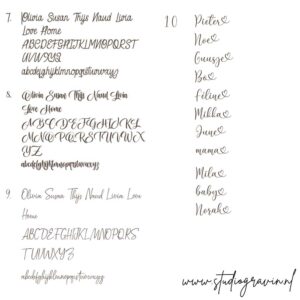 7. Olivia Susan Thijs Naud Livia
Love Home
ABCDEFGHIJKLMNOPQRST
UVWXYZ
abcdefghijklmnopqrstuvwxyz
8. Olivia Susan Thijs Naud Livia
Love Home
ABCDEFGHIJKL
MNOPQRSTUVWX
YZ
abcdefghijklmnopqrstuvwxyz
9. Olivia Susan Thijs Naud Livia Love
Home
ABCDEFGHIJKLMNOPQRS
TUVWXYZ
abcdefghijklmnopqrstuvwxyz
10 Pieter
Noé
Guusje
Bo
Féline
Mikka
June
mama
Mila
baby
Norah
www.studiogravin.nl